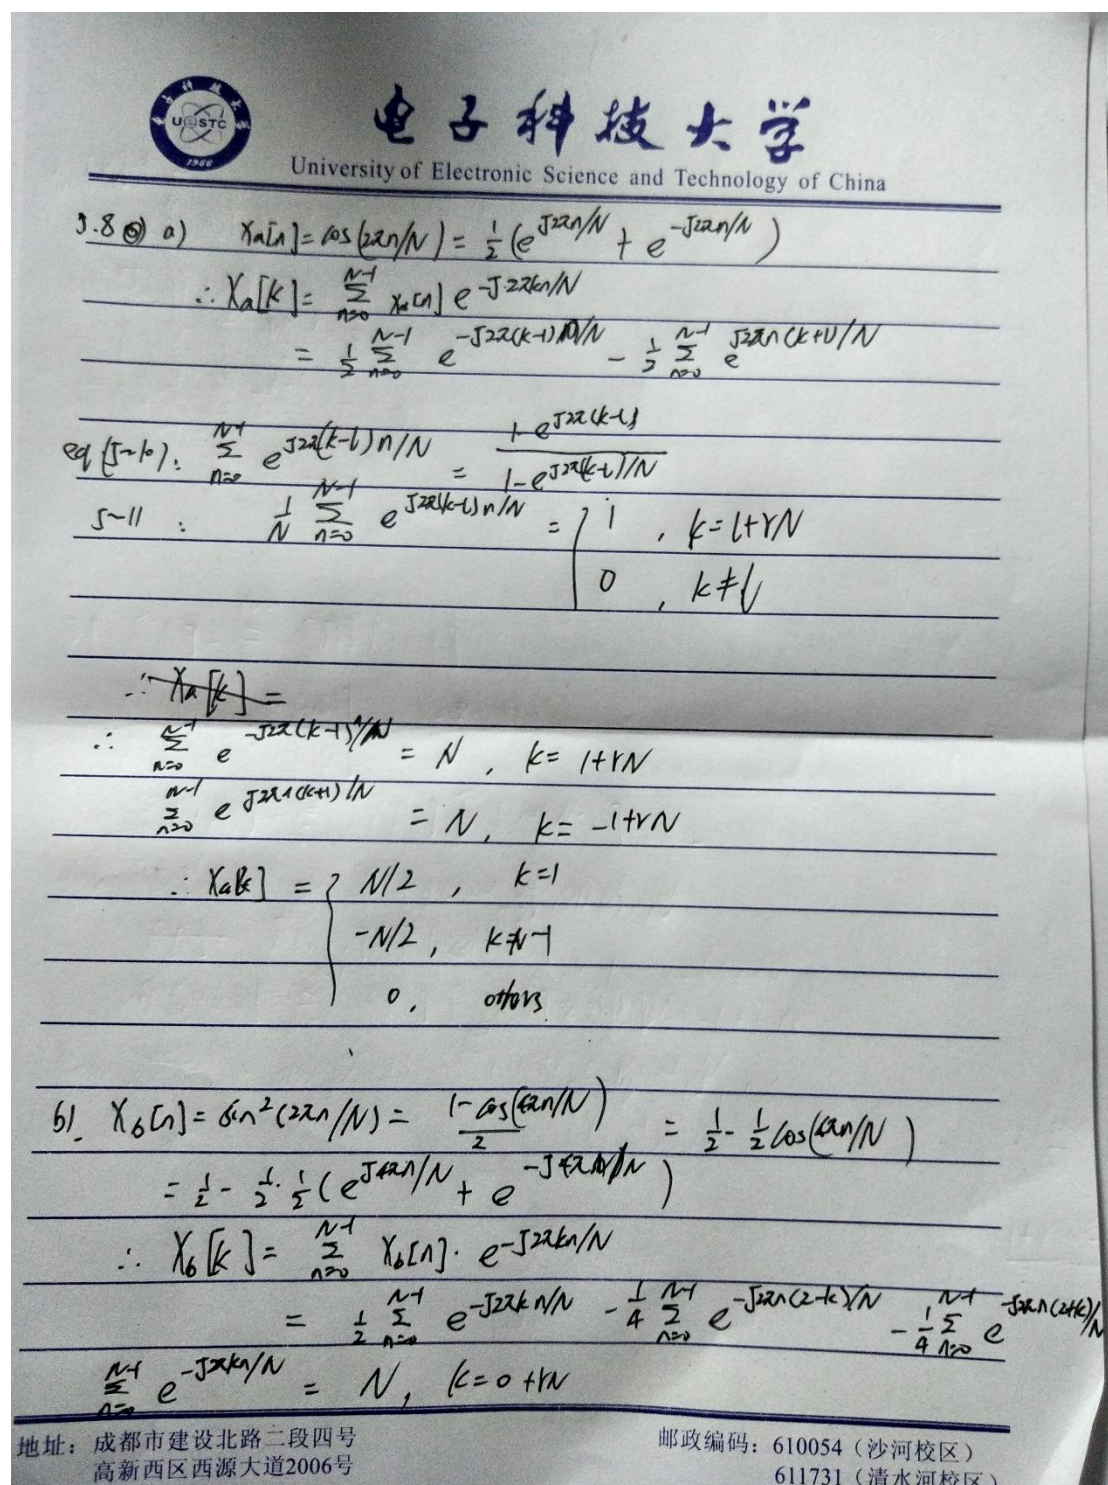 UESTC
1956
电子科技大学
University of Electronic Science and Technology of China
5.8 a) Xa[n]=cos(2πn/N)=½(e^{J2πn/N} + e^{-J2πn/N})
∴ Xa[k]= Σ_{n=0}^{N-1} Xa[n] e^{-J2πkn/N}
= ½ Σ_{n=0}^{N-1} e^{-J2π(k-1)n/N} - ½ Σ_{n=0}^{N-1} e^{J2πn(k+1)/N}
eq(5~10): Σ_{n=0}^{N-1} e^{J2π(k-l)n/N} = (1-e^{J2π(k-l)})/(1-e^{J2π(k-l)/N})
5~11: 1/N Σ_{n=0}^{N-1} e^{J2π(k-l)n/N} = { 1, k=l+rN
0, k≠l
∴ Xa[k] =
∴ Σ_{n=0}^{N-1} e^{-J2π(k-1)n/N} = N, k= 1+rN
Σ_{n=0}^{N-1} e^{J2πn(k+1)/N} = N, k= -1+rN
∴ Xa[k] = { N/2, k=1
-N/2, k=N-1
0, others
b). Xb[n]=sin²(2πn/N)= (1-cos(4πn/N))/2 = ½ - ½cos(4πn/N)
= ½ - ½·½(e^{J4πn/N} + e^{-J4πn/N})
∴ Xb[k]= Σ_{n=0}^{N-1} Xb[n]· e^{-J2πkn/N}
= ½ Σ_{n=0}^{N-1} e^{-J2πkn/N} - ¼ Σ_{n=0}^{N-1} e^{-J2πn(2-k)/N} - ¼ Σ_{n=0}^{N-1} e^{-J2πn(2+k)/N}
Σ_{n=0}^{N-1} e^{-J2πkn/N} = N, k=0+rN
地址：成都市建设北路二段四号 邮政编码：610054（沙河校区）
高新西区西源大道2006号 611731（清水河校区）